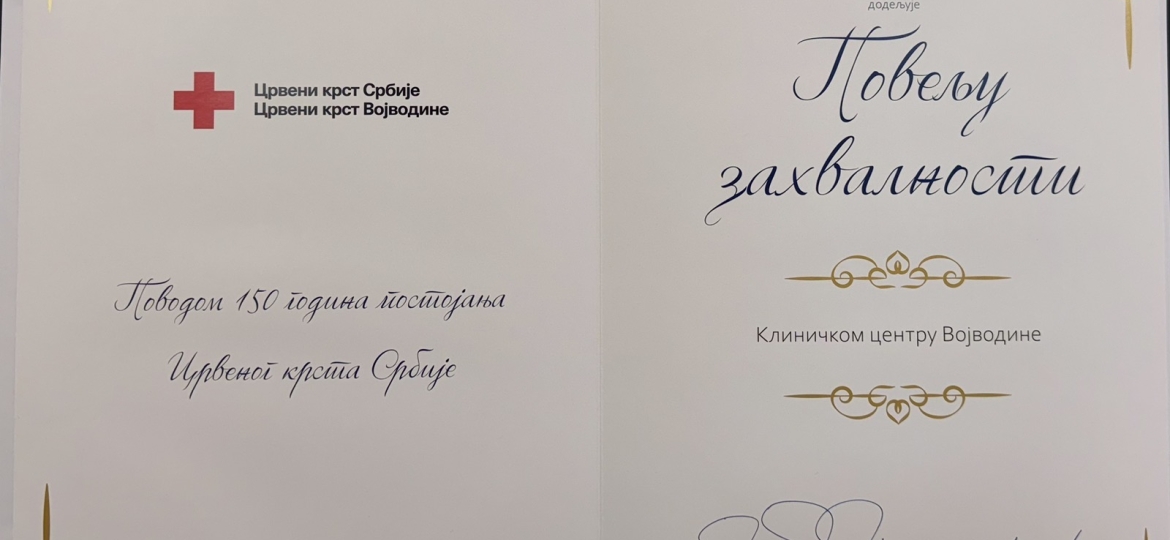 Црвени крст Србије
Црвени крст Војводине
Поводом 150 година постојања
Црвеног крста Србије
додељује
Повељу
захвалности
Клиничком центру Војводине